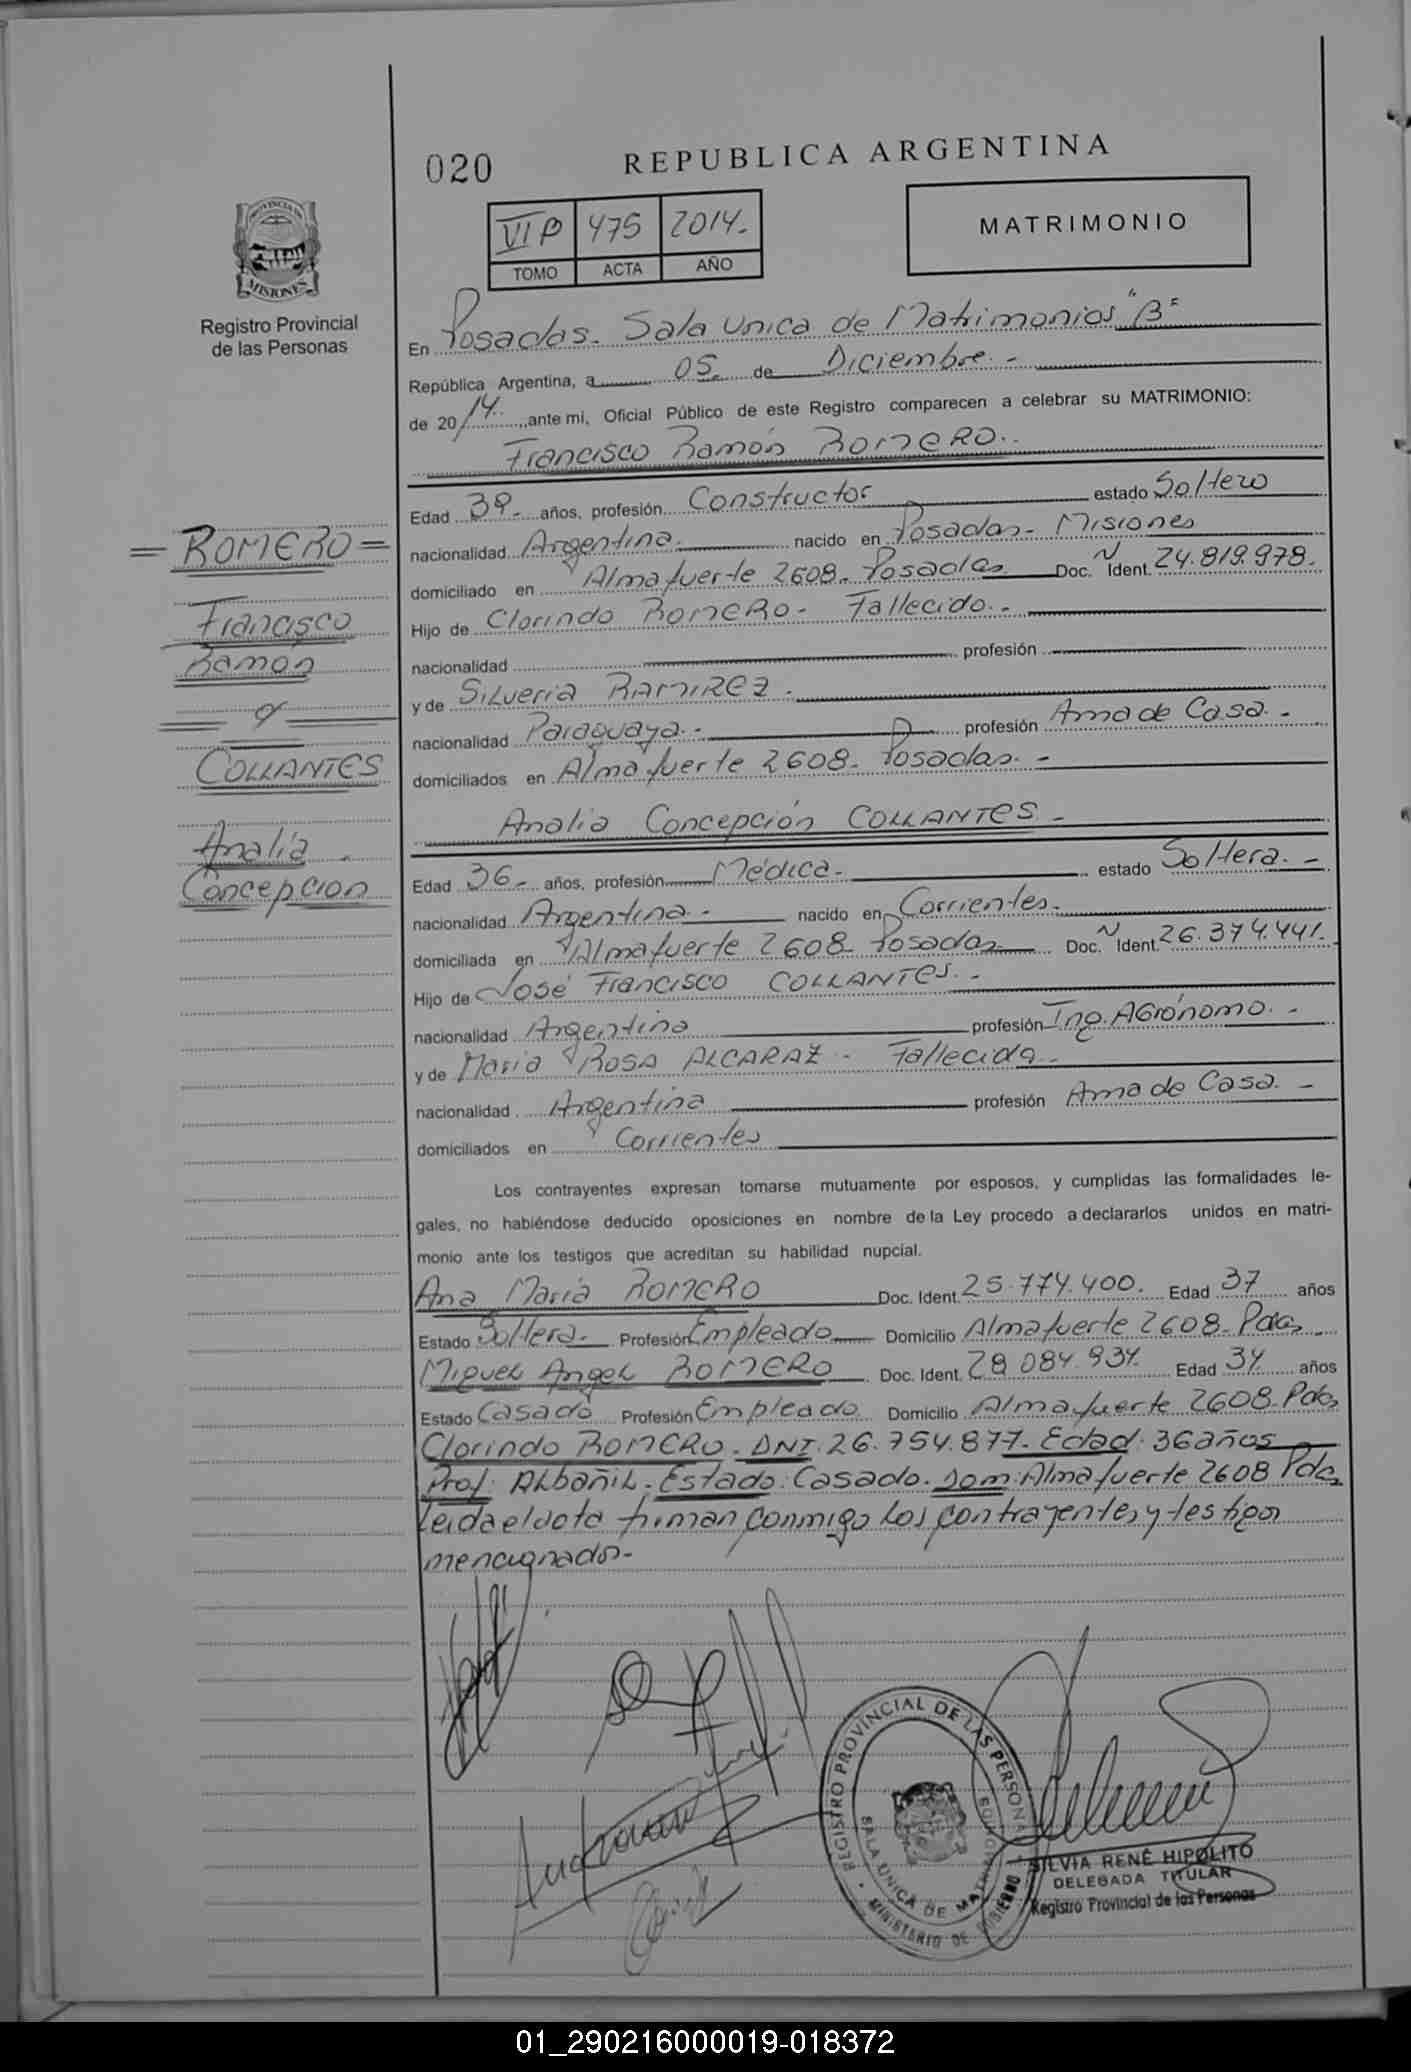 020
REPUBLICA ARGENTINA
VI B 475 2014.
TOMO ACTA AÑO
MATRIMONIO
PROVINCIA DE
MISIONES
Registro Provincial
de las Personas
En Posadas. Sala Unica de Matrimonios "B"
República Argentina, a 05. de Diciembre.-
de 2014. ante mi, Oficial Público de este Registro comparecen a celebrar su MATRIMONIO:
Francisco Ramón ROMERO.
Edad 39.- años, profesión Constructor estado Soltero
nacionalidad Argentina. nacido en Posadas- Misiones
domiciliado en Almafuerte 2608. Posadas Doc. Ident. 24.819.978.
Hijo de Clorindo ROMERO- Fallecido.-
nacionalidad profesión
y de Silveria RAMIREZ.
nacionalidad Paraguaya.- profesión Ama de Casa.-
domiciliados en Almafuerte 2608. Posadas.-
= ROMERO =
Francisco
Ramón
y
COLLANTES
Analía
Concepcion
Analia Concepción COLLANTES.-
Edad 36.- años, profesión Médica. estado Soltera.-
nacionalidad Argentina.- nacido en Corrientes.
domiciliada en Almafuerte 2608. Posadas Doc. Ident. 26.374.441.
Hijo de José Francisco COLLANTES.-
nacionalidad Argentina profesión Ing. Agrónomo.-
y de Maria Rosa ALCARAZ- Fallecida.
nacionalidad Argentina profesión Ama de Casa.-
domiciliados en Corrientes
Los contrayentes expresan tomarse mutuamente por esposos, y cumplidas las formalidades le-
gales, no habiéndose deducido oposiciones en nombre de la Ley procedo a declararlos unidos en matri-
monio ante los testigos que acreditan su habilidad nupcial.
Ana Maria ROMERO Doc. Ident. 25.774.400. Edad 37 años
Estado Soltera.- Profesión Empleado Domicilio Almafuerte 2608. Pdas.
Miguel Angel ROMERO Doc. Ident. 28.084.934. Edad 34 años
Estado Casado Profesión Empleado Domicilio Almafuerte 2608. Pdas
Clorindo ROMERO. DNI. 26.754.877. Edad: 36 años
Prof: Albañil. Estado: Casado. Dom: Almafuerte 2608 Pdas
Leida el acta firman conmigo los contrayentes y testigos
mencionados-
REGISTRO PROVINCIAL DE LAS PERSONAS
SALA UNICA DE MATRIMONIOS
MINISTERIO DE GOBIERNO
SILVIA RENÉ HIPOLITO
DELEGADA TITULAR
Registro Provincial de las Personas
01_290216000019-018372